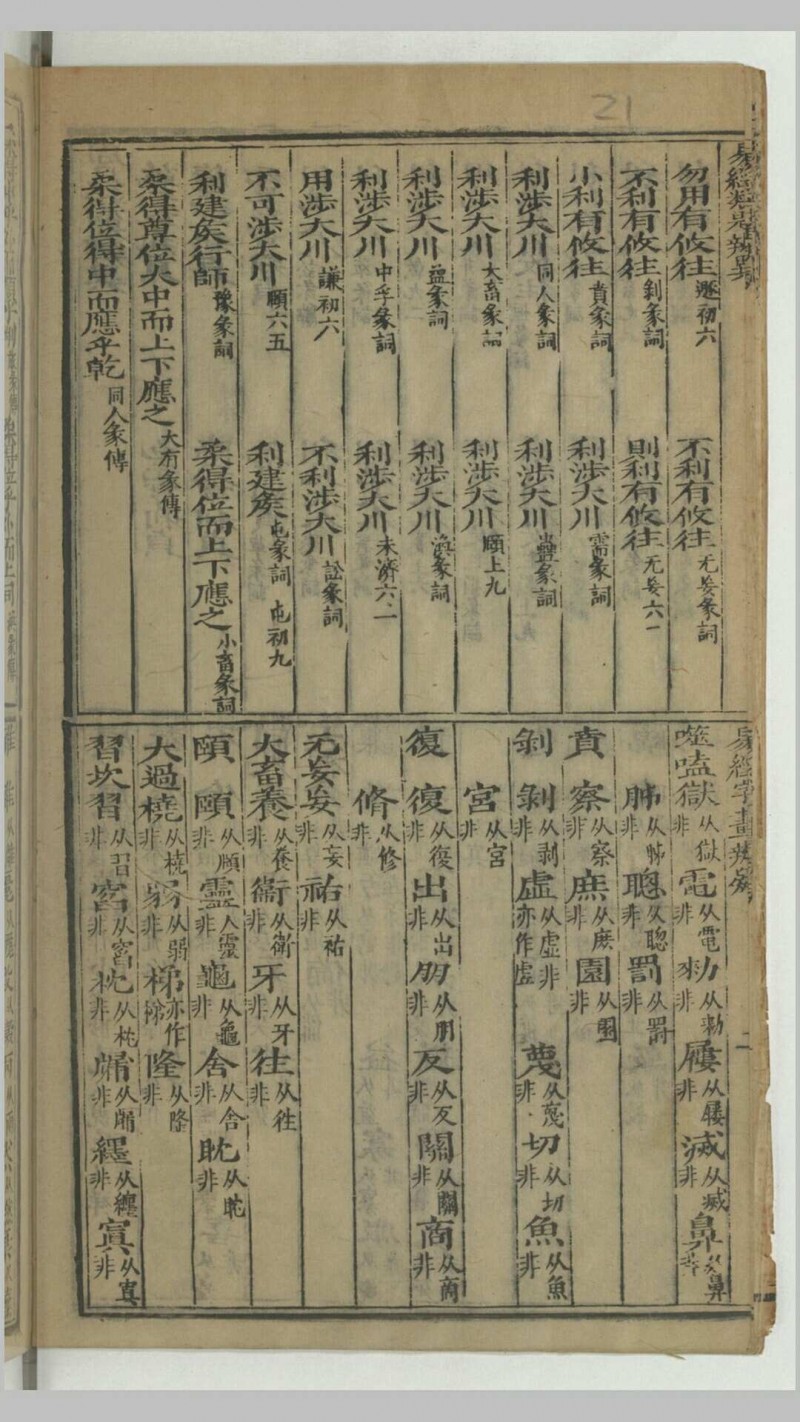 21
勿用有攸往遯初六 不利有攸往无妄彖詞
不利有攸往剝彖詞 則利有攸往无妄六二
小利有攸往賁彖詞 利涉大川需彖詞
利涉大川同人彖詞 利涉大川蠱彖詞
利涉大川大畜彖詞 利涉大川頤上九
利涉大川益彖詞 利涉大川渙彖詞
利涉大川中孚彖詞 利涉大川未濟六三
用涉大川謙初六 不利涉大川訟彖詞
不可涉大川頤六五 利建矦屯彖詞 屯初九
利建矦行師豫彖詞 柔得位而上下應之小畜彖詞
柔得尊位大中而上下應之大有彖傳
柔得位得中而應乎乾同人彖傳
易經字畫
二
噬嗑獄从獄非 電从電非 勑从勅非 屨从屨非 滅从滅非 鼻从鼻非
胏从胏非 聰从聡非 罰从罸非
賁 察从察非 庶从庶非 園从園非
剝 剝从剥非 虛从虚非亦作虛 蔑从蔑非 切从切非 魚从魚非
宮从宫非
復 復从復非 出从出非 朋从朋非 反从反非 關从關非 商从商非
脩从修非
无妄妄从妄非 祐从祐非
大畜養从養非 衞从衛非 牙从牙非 往从徃非
頤 頤从頤非 靈从靈非 龜从龜非 舍从舎非 眈从耽非
大過橈从橈非 弱从弱非 梯亦作稊非 隆从隆非
習坎習从習非 窞从窞非 枕从枕非 牖从牖非 纆从纆非 寘从寘非